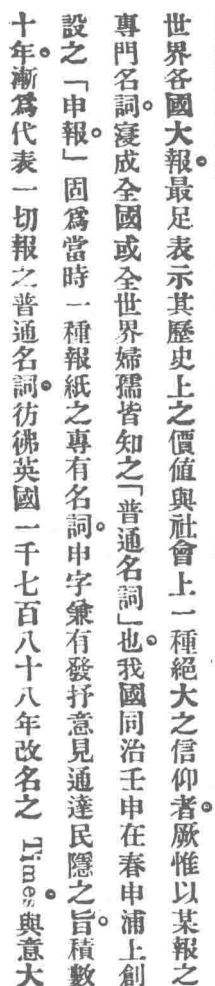 世界各國大報。最足表示其歷史上之價值與社會上一種絕大之信仰者。厥惟以某報之
專門名詞。寖成全國或全世界婦孺皆知之「普通名詞」也。我國同治壬申在春申浦上創
設之「申報」固爲當時一種報紙之專有名詞。申字兼有發抒意見通達民隱之旨。積數
十年。漸爲代表一切報之普通名詞。彷彿英國一千七百八十八年改名之 Times。與意大